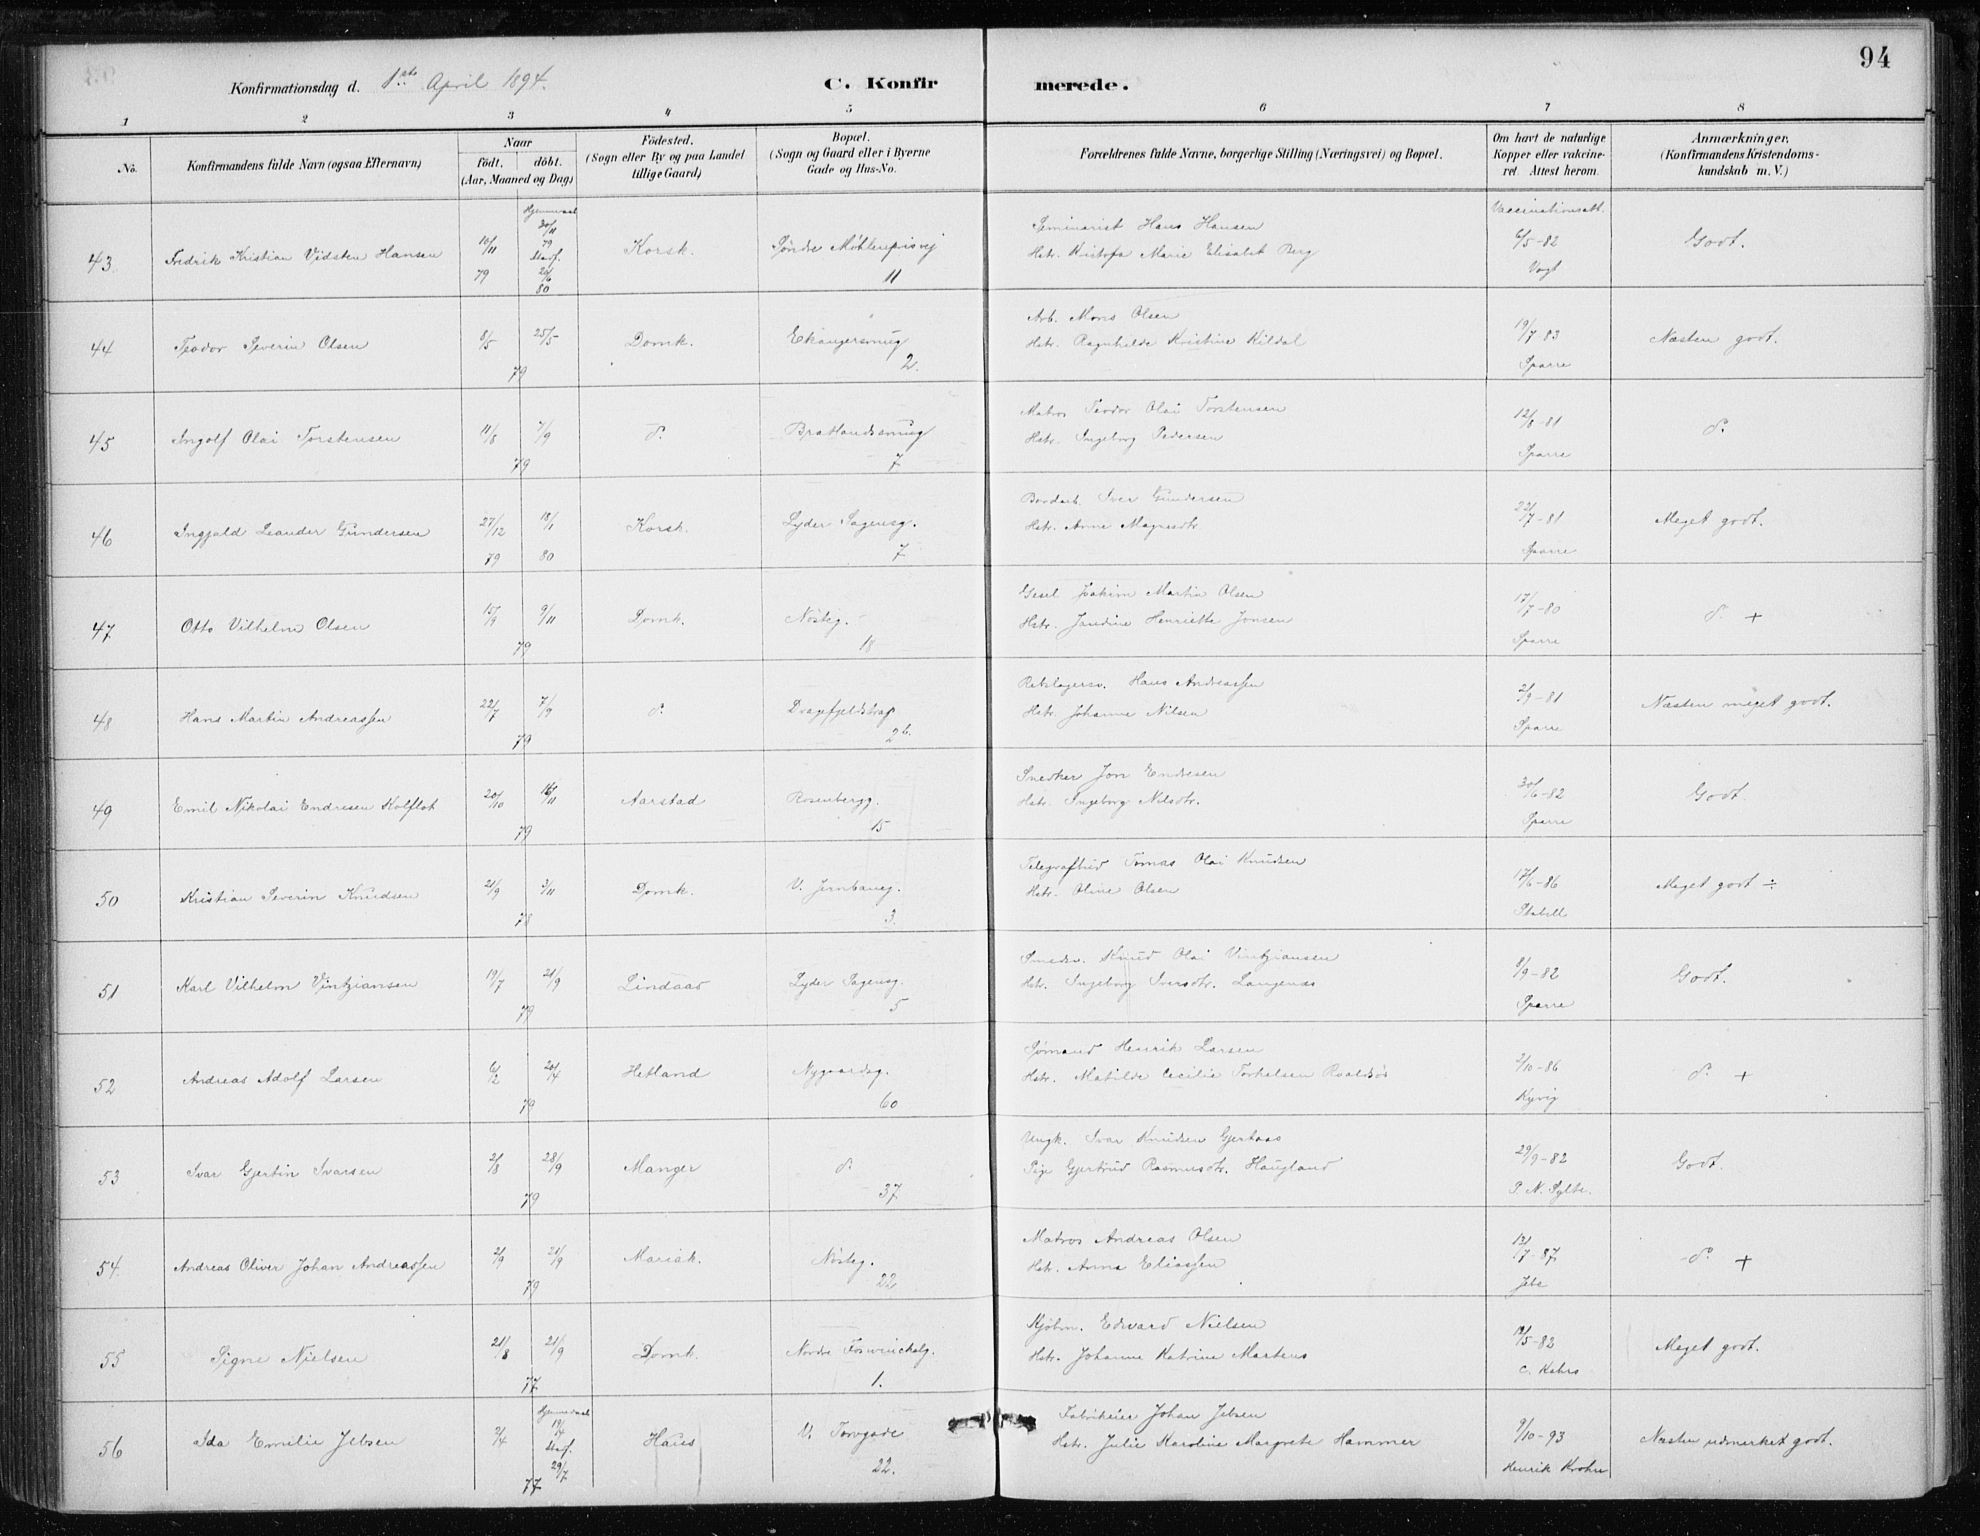 94
Konfirmationsdag d. 1ste April 1894.
C. Konfirmerede.
1 2 3 4 5 6 7 8
No. Konfirmandens fulde Navn (ogsaa Efternavn) Naar födt. döbt. (Aar, Maaned og Dag) Födested. (Sogn eller By og paa Landet tillige Gaard) Bopæl. (Sogn og Gaard eller i Byerne Gade og Hus-No. Forældrenes fulde Navne, borgerlige Stilling (Næringsvei) og Bopæl. Om havt de naturlige Kopper eller vakcineret. Attest herom. Anmærkninger, (Konfirmandens Kristendomskundskab m. V.)
43. Fredrik Kristian Vidsten Hansen 10/11 79 Hjemmed. 20/11 79 Stadf. 80 Korsk. Søndre 11 Seminarist Hans Hansen
Hstr. Kristofa Marie Elisabet Berg Vaccinationsatt. 6/5-82 Vogt Godt.
44 Teodor Severin Olsen 8/5 25/5 79 Domk. Ekangersmug 2. Arb. Mons Olsen
Hstr. Ragnhilde Kristine Kildal 19/7 83 Sparre Næsten godt.
45 Ingolf Olai Torstensen 11/8 7/9 79 d. Bratlandssmug 7 Matros Teodor Olai Torstensen
Hstr. Ingeborg Pedersen 12/8-81 Sparre d.
46 Ingjald Leander Gundersen 27/12 79 18/1 80 Korsk. Lyder Sagensg. 7 Bordarb. Iver Gundersen
Hstr. Anne Magnesdtr. 22/7-81 Sparre Meget godt.
47. Otto Vilhelm Olsen 15/9 9/11 79 Domk. Nösteg. 18 Gesel Joakim Martin Olsen
Hstr. Jandine Henriette Jonsen 17/7-80 Sparre d. +
48 Hans Martin Andreassen 22/7 7/9 79 d. Dragefjeldstrap 2b. Hans Andreassen
Hstr. Johanne Nilsen 2/9-81 Sparre Næsten meget godt.
49 Emil Nikolai Endresen Kolflot 20/10 16/11 79 Aarstad Rosenbergg. 15 Snedker Jon Endresen
Hstr. Ingeborg Nilsdtr. 30/6-82 Sparre Godt
50 Kristian Severin Knudsen 21/9 3/11 78 Domk. V. Jernbaneg. 3. Telegrafbud Tomas Olai Knudsen
Hstr. Oline Olsen 17/6-86 Stabell Meget godt ÷
51 Karl Vilhelm Vintjiansen 19/7 21/9 79 Lindaas Lyder Sagensg. 5 Smedsv. Knud Olai Vintjiansen
Hstr. Ingeborg Iversdtr. Langenæs 8/9-82 Sparre Godt.
52 Andreas Adolf Larsen 6/2 20/4 79 Hetland Nygaardsg. 60 Sømand Henrik Larsen
Hstr. Matilde Cecilie Torkelsen Roaldsøs 2/10-86 Kyvig d. +
53 Ivar Gjertin Ivarsen 2/8 28/9 79 Manger d. 37 Ungk. Ivar Knudsen Gjertaas
Pige Gjertrud Rasmusdtr. Haugland 29/9-82 P. N. Sylte. Godt.
54. Andreas Oliver Johan Andreassen 2/9 21/9 79 Mariak. Nösteg. 22 Matros Andreas Olsen
Hstr. Anna Eliassen 12/7-87 Jebe d. +
55 Signe Nielsen 21/8 21/9 77 Domk. Nordre Foswinckelg. 1. Kjøbm. Edvard Nielsen
Hstr. Johanne Katrine Martens 19/5-82 C. Kahrs Meget godt.
56 Ida Emilie Jebsen 2/4 Hjemmed. 19/4 Stadf. 29/7 77 Haus V. Torvgade 22. Fabrikeier Johan Jebsen
Hstr. Julie Karoline Margrete Hammer 9/10-93 Henrik Krohn Næsten udmerket godt.